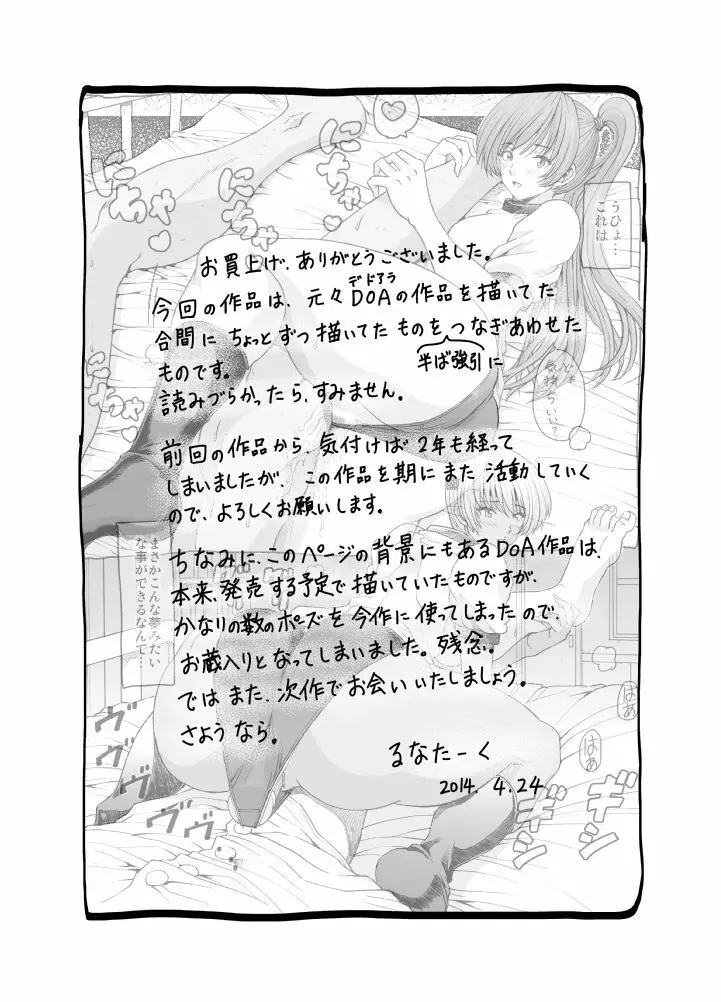 お買上げ、ありがとうございました。
今回の作品は、元々DOAの作品を描いてた
デドアラ
合間にちょっとずつ描いてたものをつなぎあわせた
半ば強引に
ものです。
読みづらかったら、すみません。
前回の作品から、気付けば2年も経って
しまいましたが、この作品を期にまた活動していく
ので、よろしくお願いします。
ちなみに、このページの背景にもあるDOA作品は、
本来、発売する予定で描いていたものですが、
かなりの数のポーズを今作に使ってしまったので、
お蔵入りとなってしまいました。残念。
ではまた、次作でお会いいたしましょう。
さようなら。
るなたーく
2014. 4.24
うひょ…
これは
まさかこんな夢みたい
な事ができるなんて…
にちゃ
にちゃ
にちゃ
はぁ
はぁ
ギシ
ギシ
ヴヴヴ
ヴヴヴ